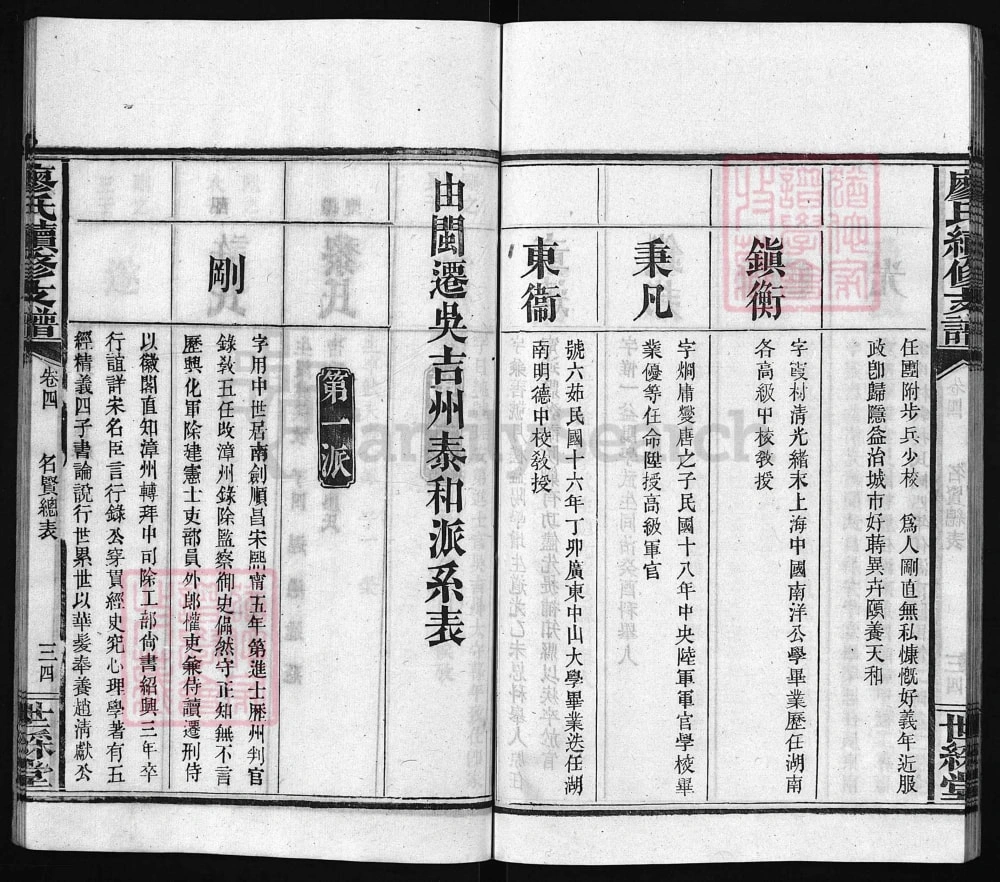 廖氏續修支譜
世綵堂
任國附步兵少校　爲人剛直無私慷慨好義年近服
政卽歸隱益治城市好蒔異卉頤養天和
鎮衡
字霞村淸光緒末上海中國南洋公學畢業歷任湖南
各高級甲校敎授
秉凡
字烱庸燮唐之子民國十八年中央陸軍軍官學校畢
業優等任命陞授高級軍官
東衞
號六茹民國十六年丁卯廣東中山大學畢業迭任湖
南明德中校敎授
由閩遷吳吉州泰和派系表
第一派
剛
字用中世居南劍順昌宋熙甯五年第進士歷州判官
錄敎五任改漳州錄除監察御史儼然守正知無不言
歷興化軍除建憲士吏部員外郎權吏兼侍讀遷刑侍
以徽閣直知漳州轉拜中司除工部尙書紹興三年卒
行誼詳宋名臣言行錄公穿貫經史究心理學著有五
經精義四子書論說行世累世以華髮奉養趙淸獻公
廖氏續修支譜
卷四
名賢總表
三四
世綵堂